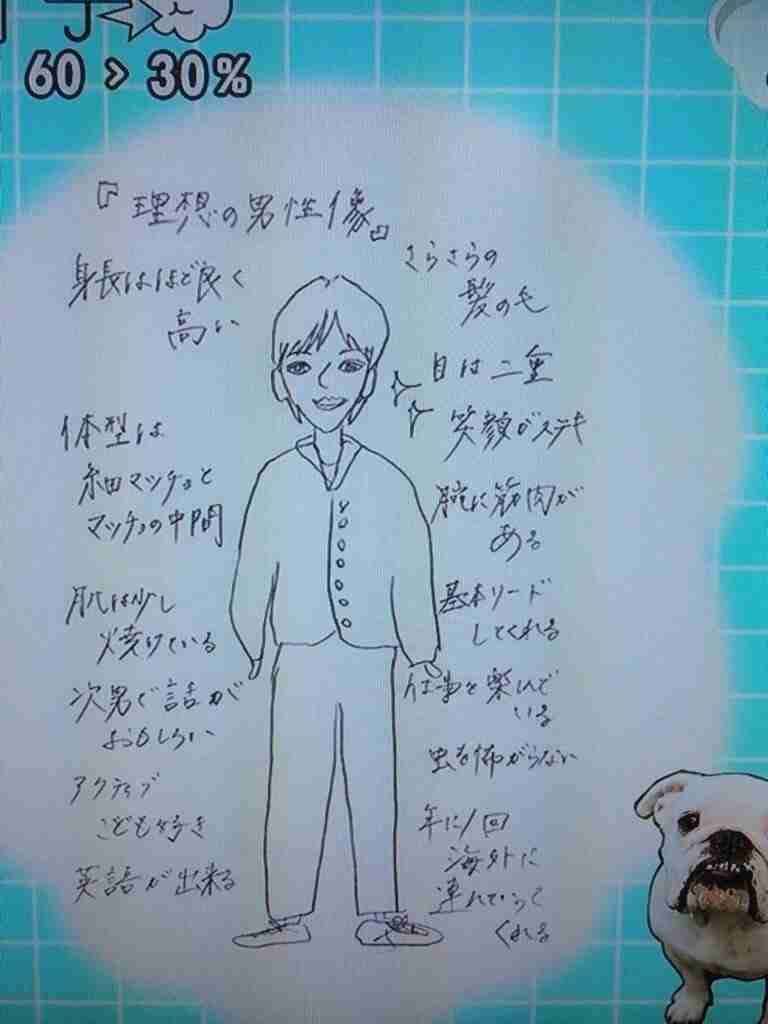 60 > 30%
『理想の男性像』
身長はほど良く
高い
体型は
細マッチョと
マッチョの中間
肌は少し
焼けている
次男で話が
おもしろい
アクティブ
こども好き
英語が出来る
さらさらの
髪の毛
目は二重
笑顔がステキ
腕に筋肉が
ある
基本リード
してくれる
仕事を楽しんで
いる
虫を怖がらない
年に1回
海外に
連れていって
くれる